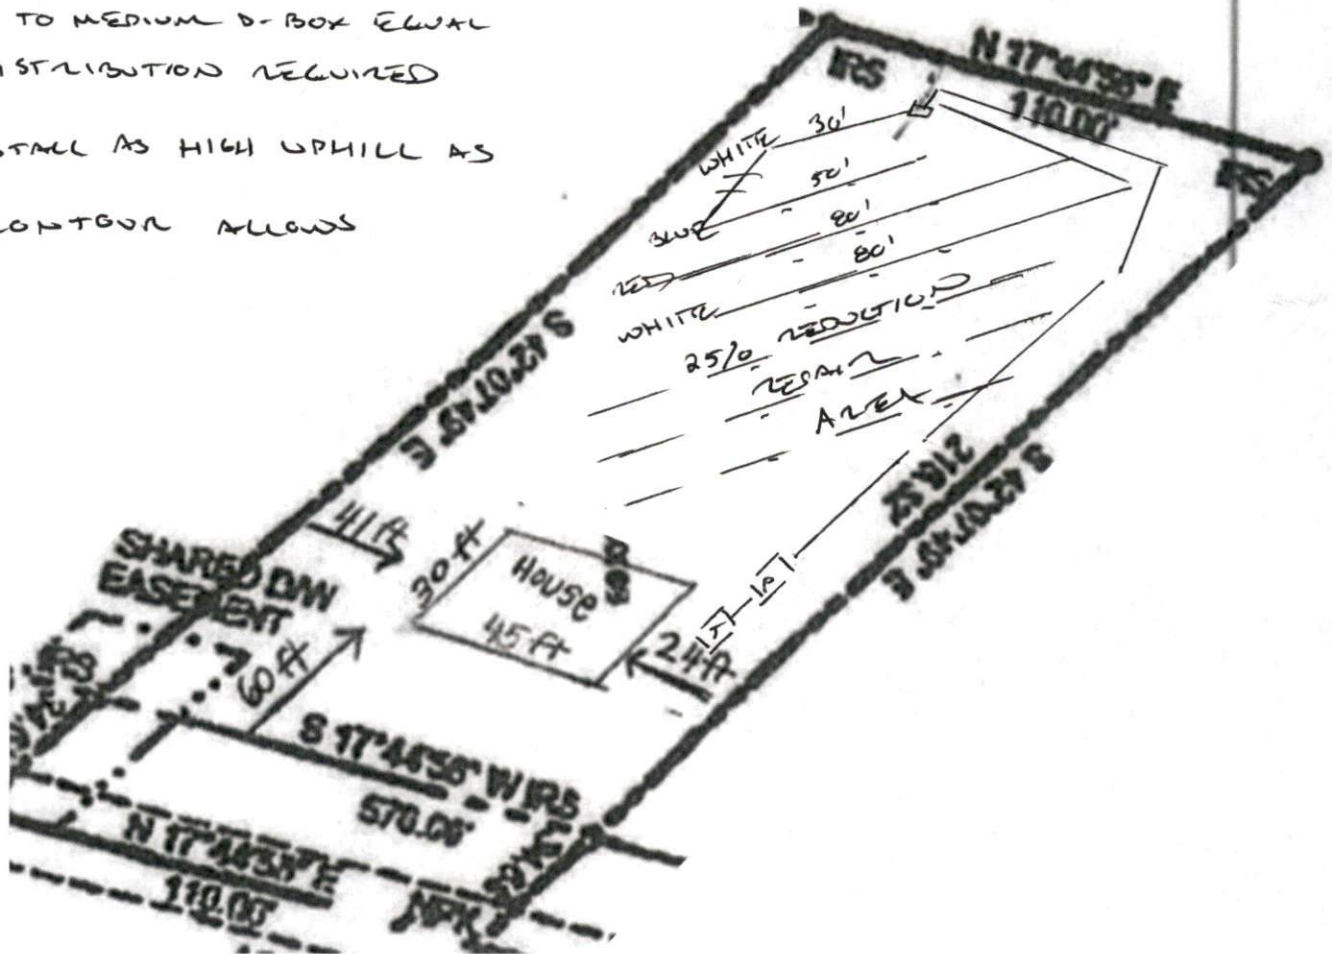 TO MEDIUM D-BOX EQUAL
DISTRIBUTION REQUIRED
INSTALL AS HIGH UPHILL AS
CONTOUR ALLOWS
IRS
N 17°44'56" E
110.00'
IRS
WHITE 30'
BLUE 50'
RED 80'
WHITE 80'
25% REDUCTION
REPAIR
AREA
S 42°07'49" E
218.32
S 42°07'49" E
41 ft
30 ft
House
45 ft
24 ft
T
P
SHARED D/W
EASEMENT
60 ft
S 17°44'56" W IRS
570.00'
N 17°44'56" E
110.00'
34.65
NPK